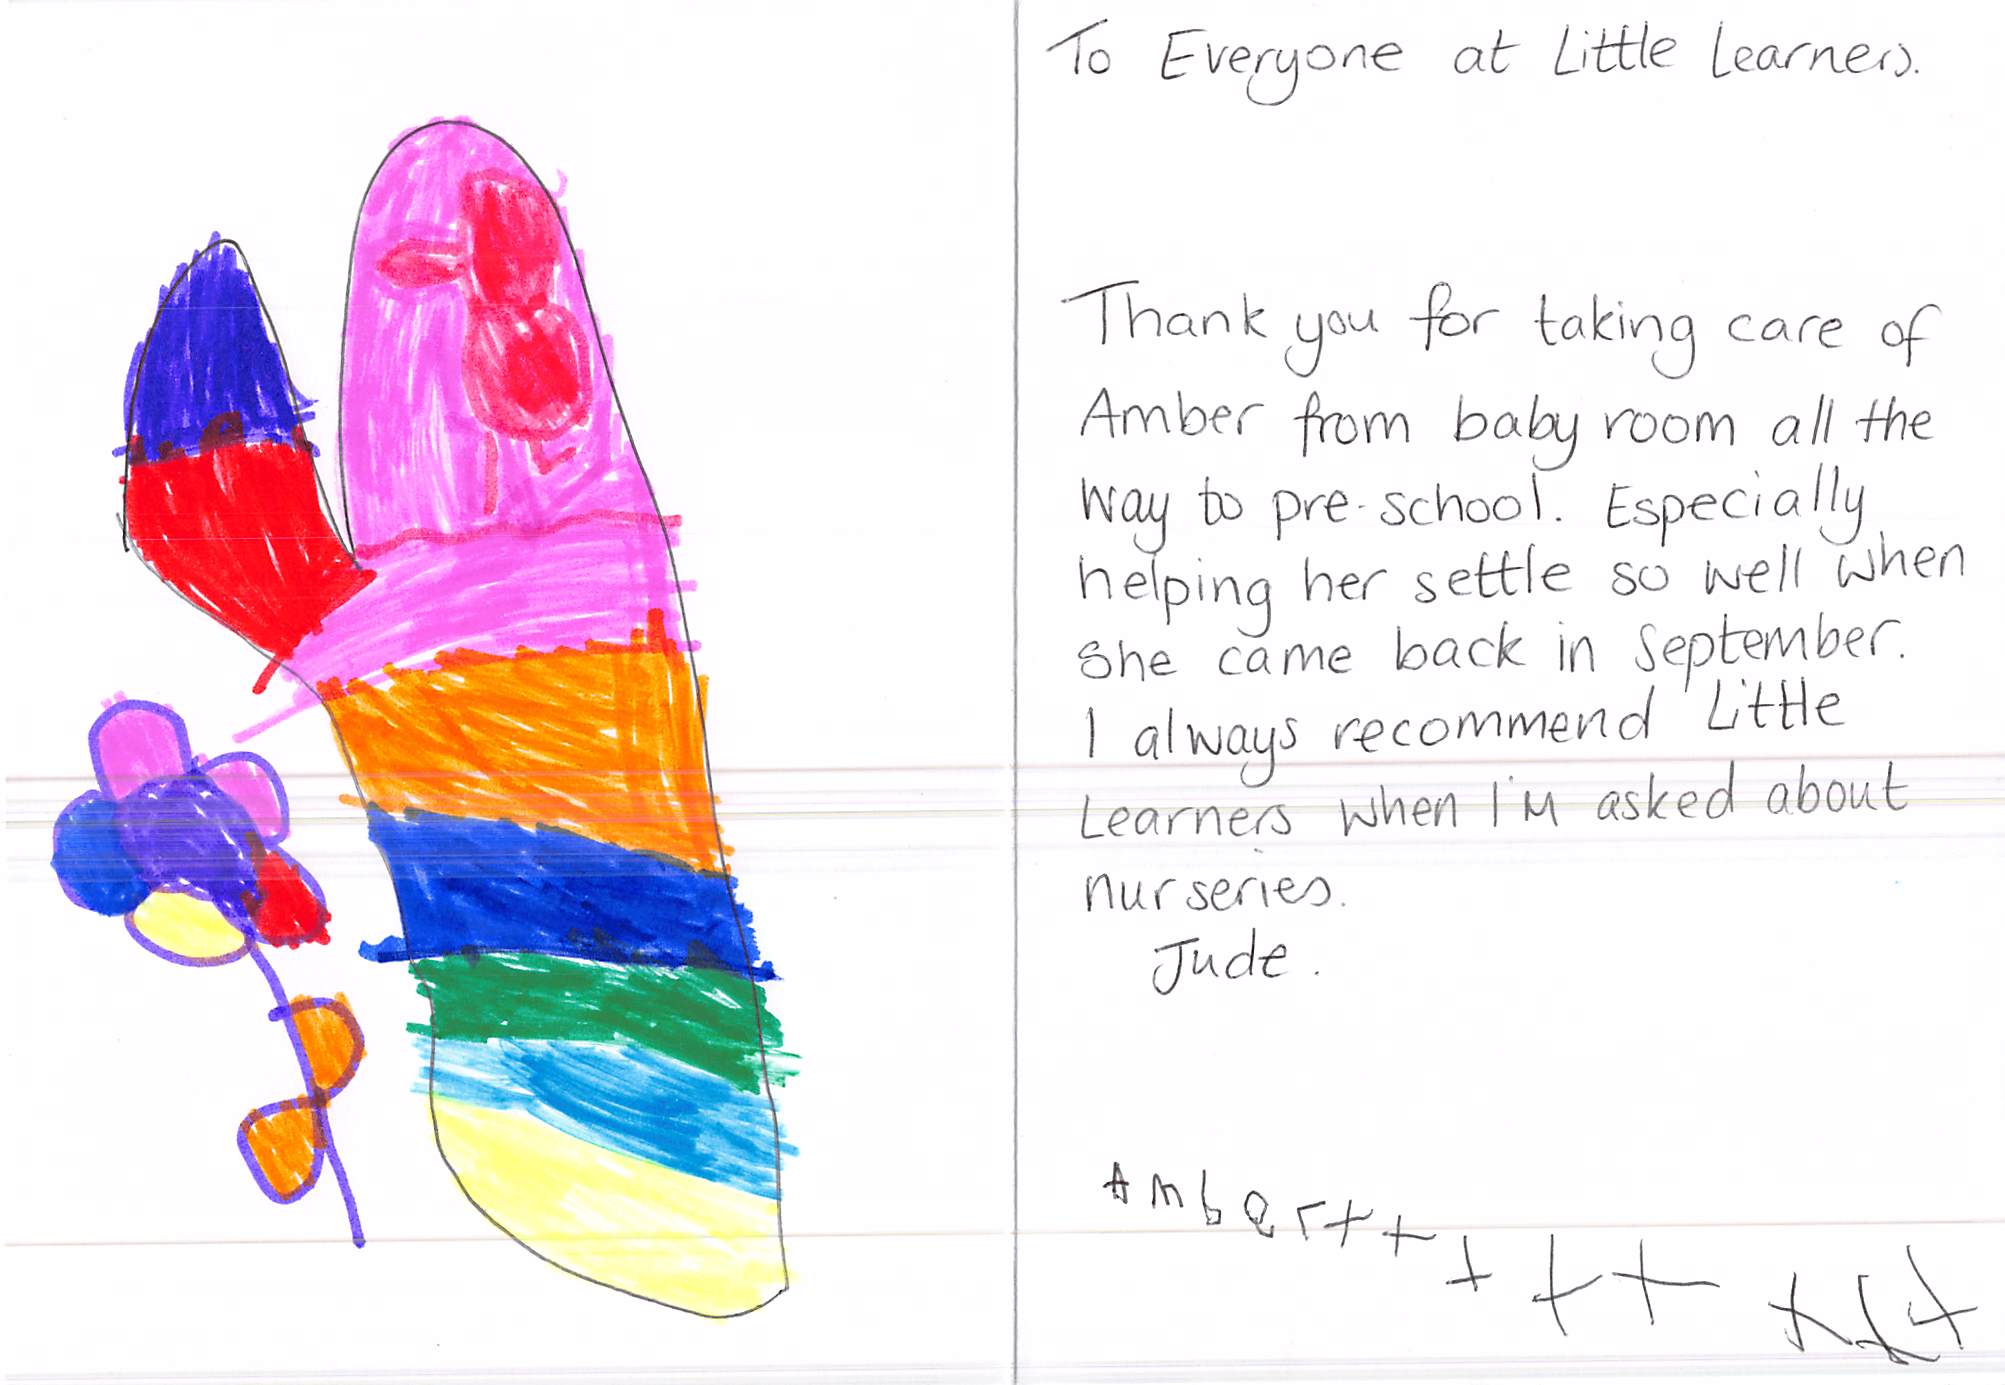 To Everyone at Little Learners.
Thank you for taking care of
Amber from baby room all the
way to pre-school. Especially
helping her settle so well when
she came back in September.
I always recommend Little
Learners when I'm asked about
nurseries.
Jude.
Amber+++++++++